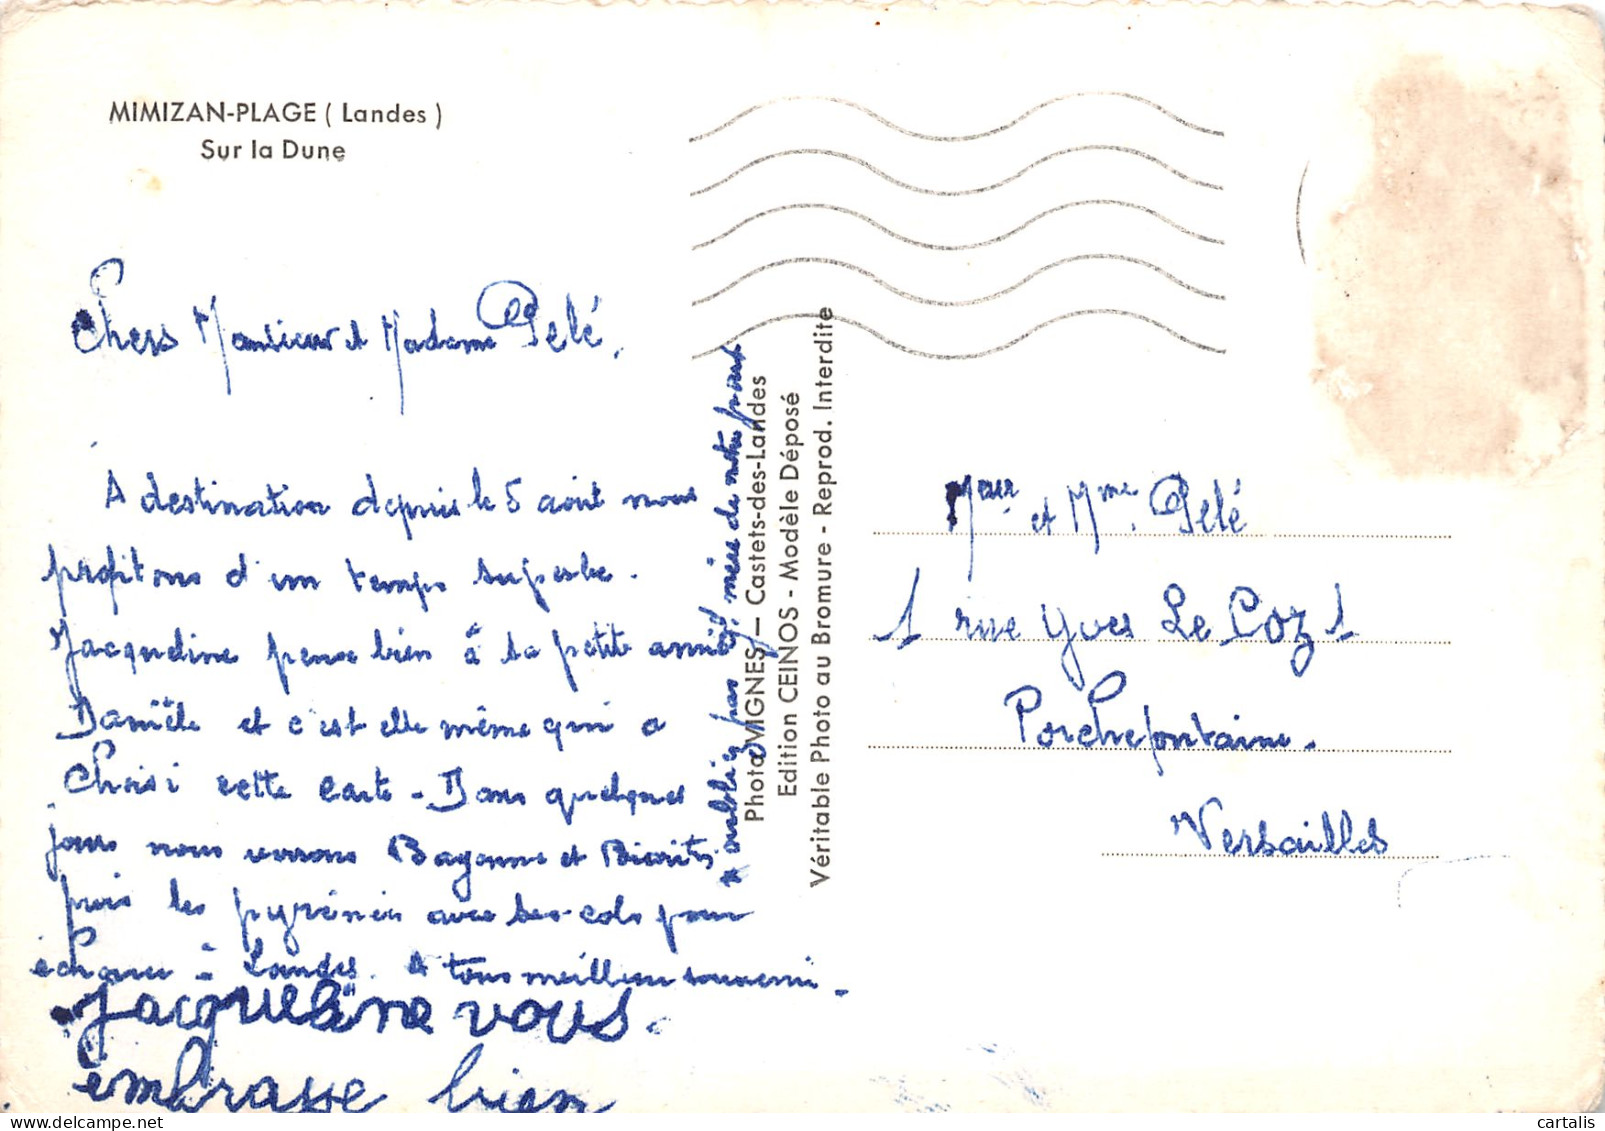 MIMIZAN-PLAGE ( Landes )
Sur la Dune
Chers Monsieur et Madame Pelé,
A destination depuis le 5 août nous
profitons d'un temps superbe.
Jacqueline pense bien à sa petite amie
Danièle et c'est elle même qui a
Choisi cette carte - Dans quelques
jours nous verrons Bayonne et Biarritz
puis les pyrénées avec ses cols pour
à Lourdes. A tous meilleur souvenir -
Jacqueline vous
embrasse bien
* oubliez pas mère de notre part
Photo VIGNES — Castets-des-Landes
Edition CEINOS - Modèle Déposé
Véritable Photo au Bromure - Reprod. Interdite
Meur et Mme Pelé
1 rue Yves Le Coz 1
Porchefontaine -
Versailles
cartalis